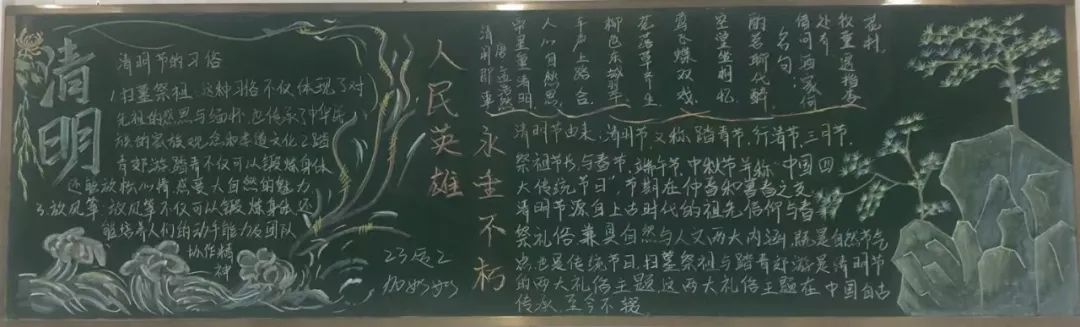 清明
清明节的习俗
1.扫墓祭祖,这种习俗不仅体现了对
先祖的感恩与缅怀,也传承了中华民
族的家族观念和孝道文化 2.踏
青郊游,踏青不仅可以锻炼身体
还能放松心情,感受大自然的魅力
3.放风筝,放风筝不仅可以锻炼身体,还
能培养人们的动手能力及团队
协作精
神
人民英雄
永垂不朽
清明即事
唐 孟浩然
帝里重清明,
人心自愁思。
车声上路合,
柳色东城翠。
花落草齐生,
莺飞蝶双戏。
空堂坐相忆,
酌茗聊代醉。
名句:
借问酒家何
处有
牧童遥指杏
花村。
清明节由来:清明节,又称踏青节、行清节、三月节、
祭祖节,与春节、端午节、中秋节并称"中国四
大传统节日",节期在仲春和暮春之交
清明节源自上古时代的祖先信仰与春
祭礼俗,兼具自然与人文两大内涵,既是自然节气
点,也是传统节日,扫墓祭祖与踏青郊游是清明节
的两大礼俗主题,这两大礼俗主题在中国自古
传承,至今不辍